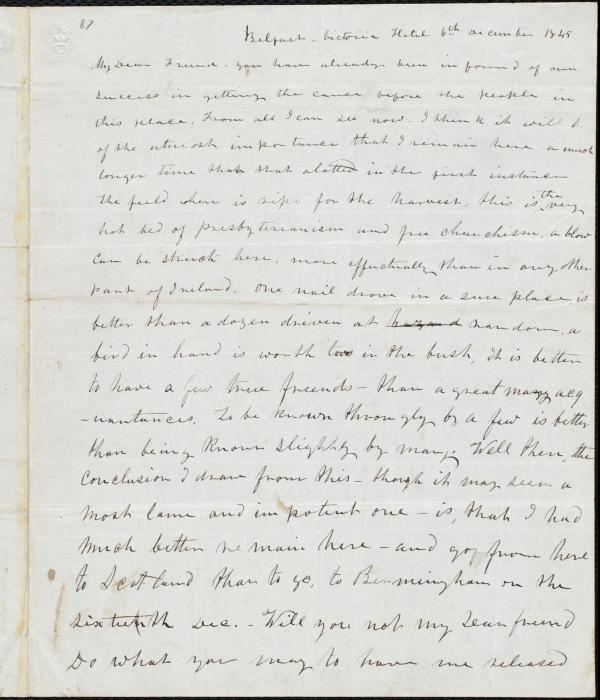 87
Belfast - Victoria Hotel 6th December 1845
My Dear Friend - you have already been informed of our
success in getting the cause before the people in
this place. From all I can see now - I think it will be
of the utmost importance that I remain here a much
longer time than that alotted in the first instance
the field when is ripe for the harvest. this is the very
hot bed of presbyterianism and free churchism, a blow
can be struck here, more effectually than in any other
part of Ireland. one nail drove in a sure place, is
better than a dozen driven at hazard random, a
bird in hand is worth two in the bush, it is better
to have a few true freends - than a great many acq
-uantances. To be known throngly by a few is better
than being Known slightly by many. Well then, the
conclusion I draw from this - though it may seem a
most lame and impotent one - is, that I had
much better remain here - and go from here
to Scotland than to go, to Bermingham on the
sixteenth Dec. - Will you not my Dear freend
Do what you may to have me released